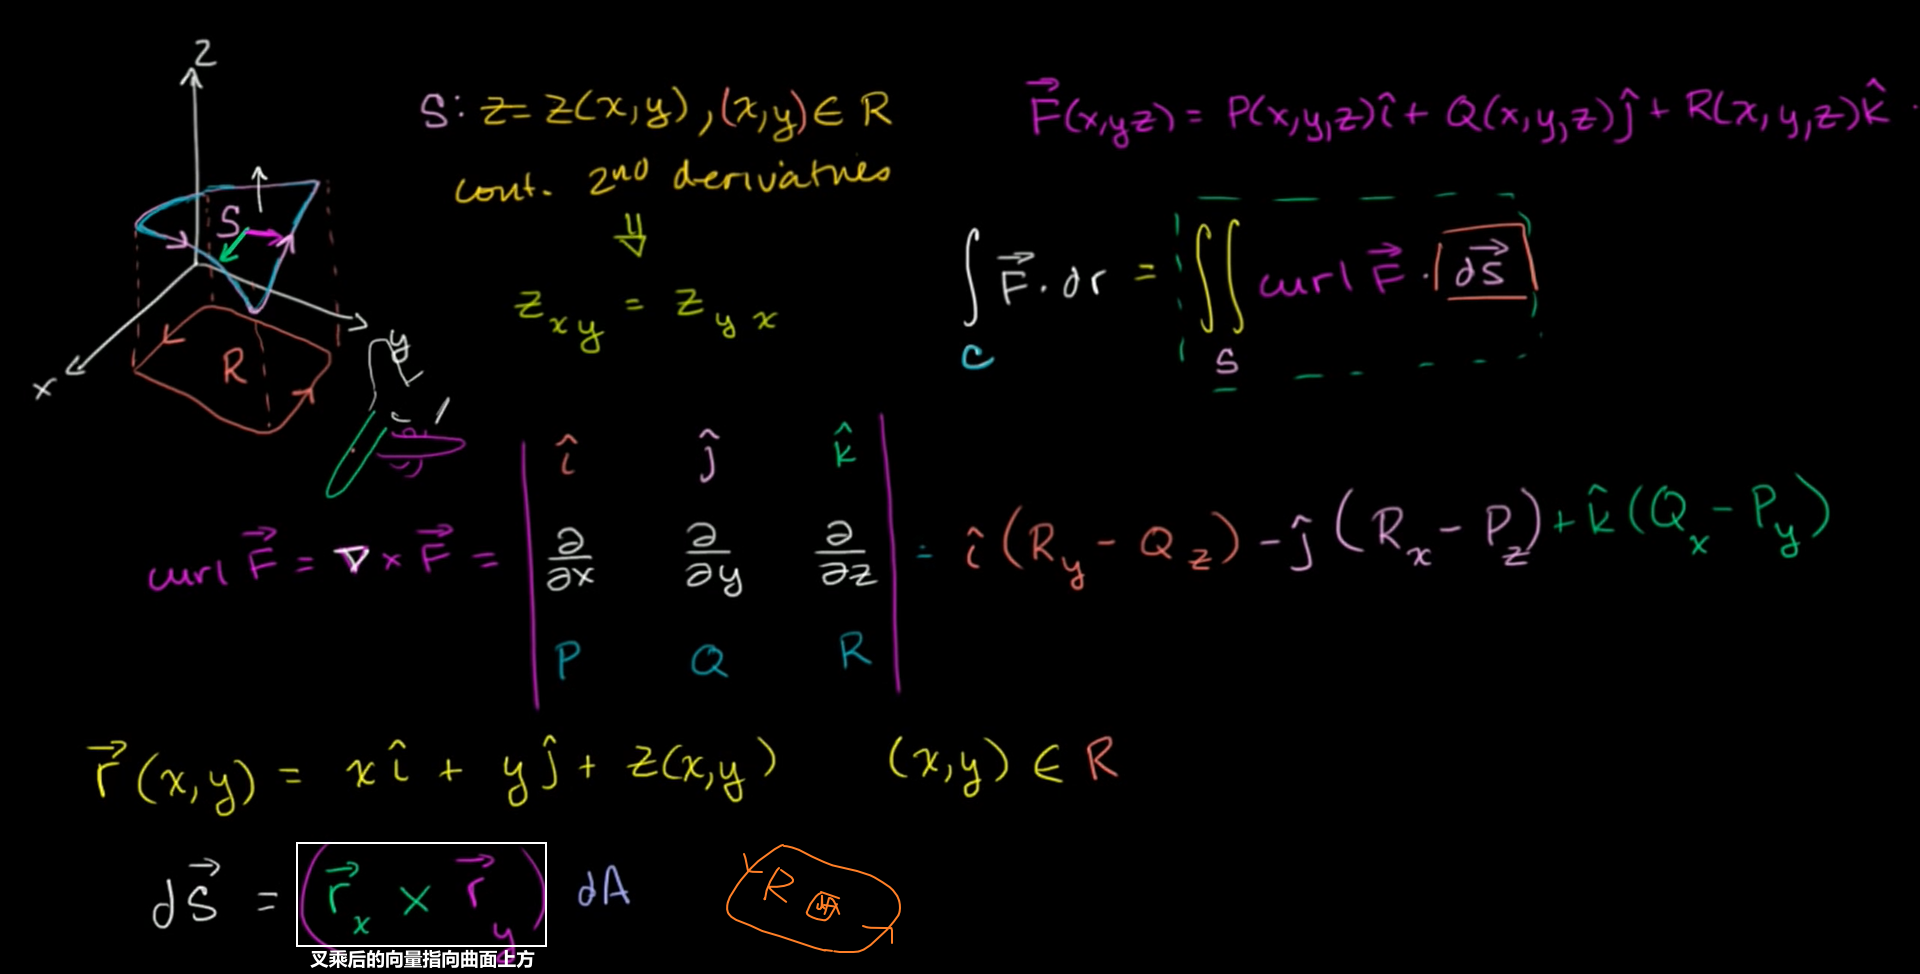 z
S
R
x
y
S: z = z(x,y), (x,y) ∈ R
cont. 2nd derivatives
⇓
z_xy = z_yx
F⃗(x,yz) = P(x,y,z)î + Q(x,y,z)ĵ + R(x,y,z)k̂ ·
∫_C F⃗ · dr = ∬_S curl F⃗ · dS⃗
curl F⃗ = ∇ × F⃗ = | î ĵ k̂ |
| ∂/∂x ∂/∂y ∂/∂z | = î(R_y − Q_z) − ĵ(R_x − P_z) + k̂(Q_x − P_y)
| P Q R |
r⃗(x,y) = xî + yĵ + z(x,y) (x,y) ∈ R
dS⃗ = (r⃗_x × r⃗_y) dA
R dA
叉乘后的向量指向曲面上方